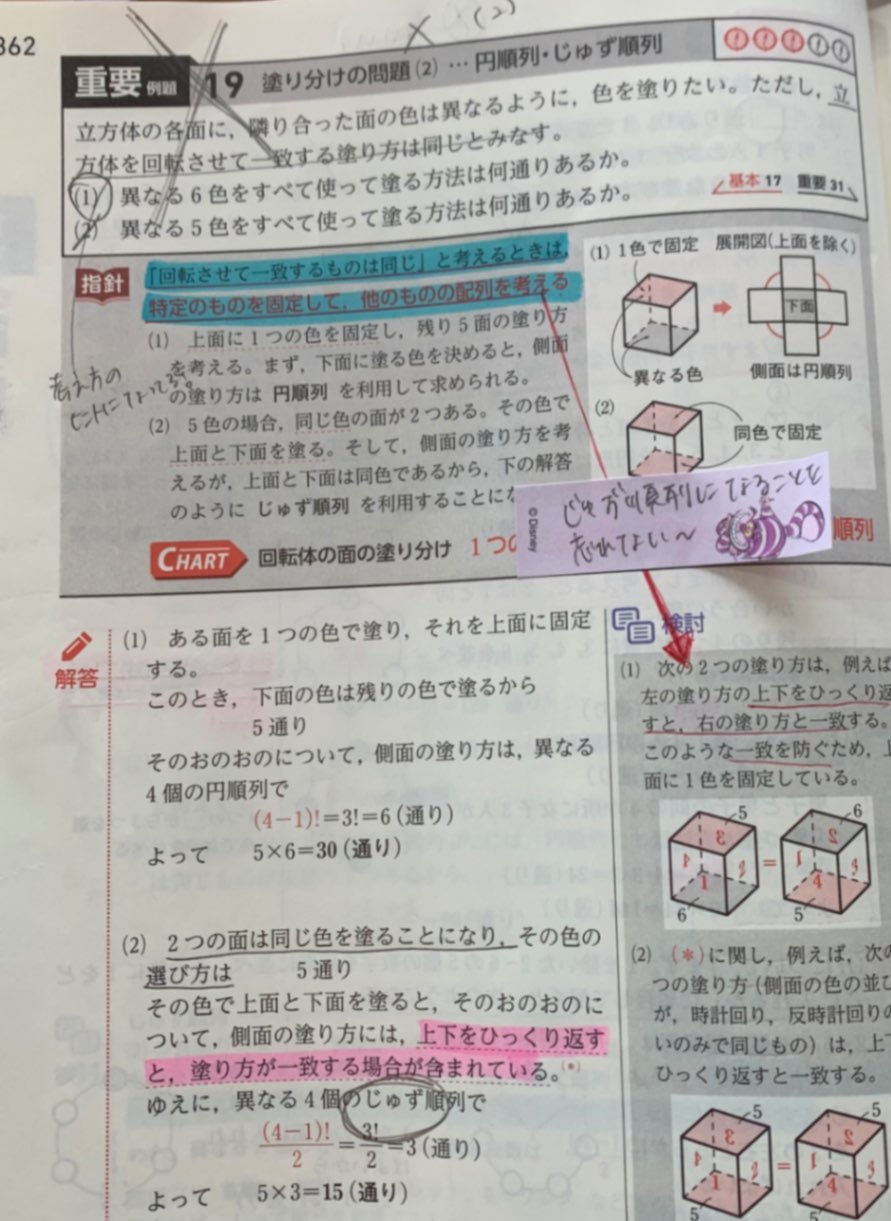 362
× (2)
重要 例題 19 塗り分けの問題(2) … 円順列・じゅず順列
立方体の各面に，隣り合った面の色は異なるように，色を塗りたい。ただし，立
方体を回転させて一致する塗り方は同じとみなす。
(1) 異なる6色をすべて使って塗る方法は何通りあるか。
(2) 異なる5色をすべて使って塗る方法は何通りあるか。
基本 17 重要 31
指針
「回転させて一致するものは同じ」と考えるときは，
特定のものを固定して，他のものの配列を考える
(1) 上面に1つの色を固定し，残り5面の塗り方
を考える。まず，下面に塗る色を決めると，側面
の塗り方は 円順列 を利用して求められる。
(2) 5色の場合，同じ色の面が2つある。その色で
上面と下面を塗る。そして，側面の塗り方を考
えるが，上面と下面は同色であるから，下の解答
のように じゅず順列 を利用することにな
考え方の
ヒントになってる。
(1) 1色で固定 展開図(上面を除く)
下面
異なる色 側面は円順列
(2)
同色で固定
© Disney
じゅず順列になることを
忘れてない～
CHART 回転体の面の塗り分け 1つの
順列
解答
(1) ある面を1つの色で塗り，それを上面に固定
する。
このとき，下面の色は残りの色で塗るから
5通り
そのおのおのについて，側面の塗り方は，異なる
4個の円順列で
(4−1)!=3!=6(通り)
よって 5×6=30(通り)
(2) 2つの面は同じ色を塗ることになり，その色の
選び方は 5通り
その色で上面と下面を塗ると，そのおのおのに
ついて，側面の塗り方には，上下をひっくり返す
と，塗り方が一致する場合が含まれている。(*)
ゆえに，異なる4個のじゅず順列で
(4−1)!/2=3!/2=3(通り)
よって 5×3=15(通り)
検討
(1) 次の2つの塗り方は，例えば
左の塗り方の上下をひっくり返
すと，右の塗り方と一致する。
このような一致を防ぐため，上
面に1色を固定している。
5 3 1 6 = 6 2 1 4 5
(2) (*)に関し，例えば，次の
つの塗り方(側面の色の並び
が，時計回り，反時計回りの
いのみで同じもの)は，上下
ひっくり返すと一致する。
5 3 1 5 = 5 2 1 4 5